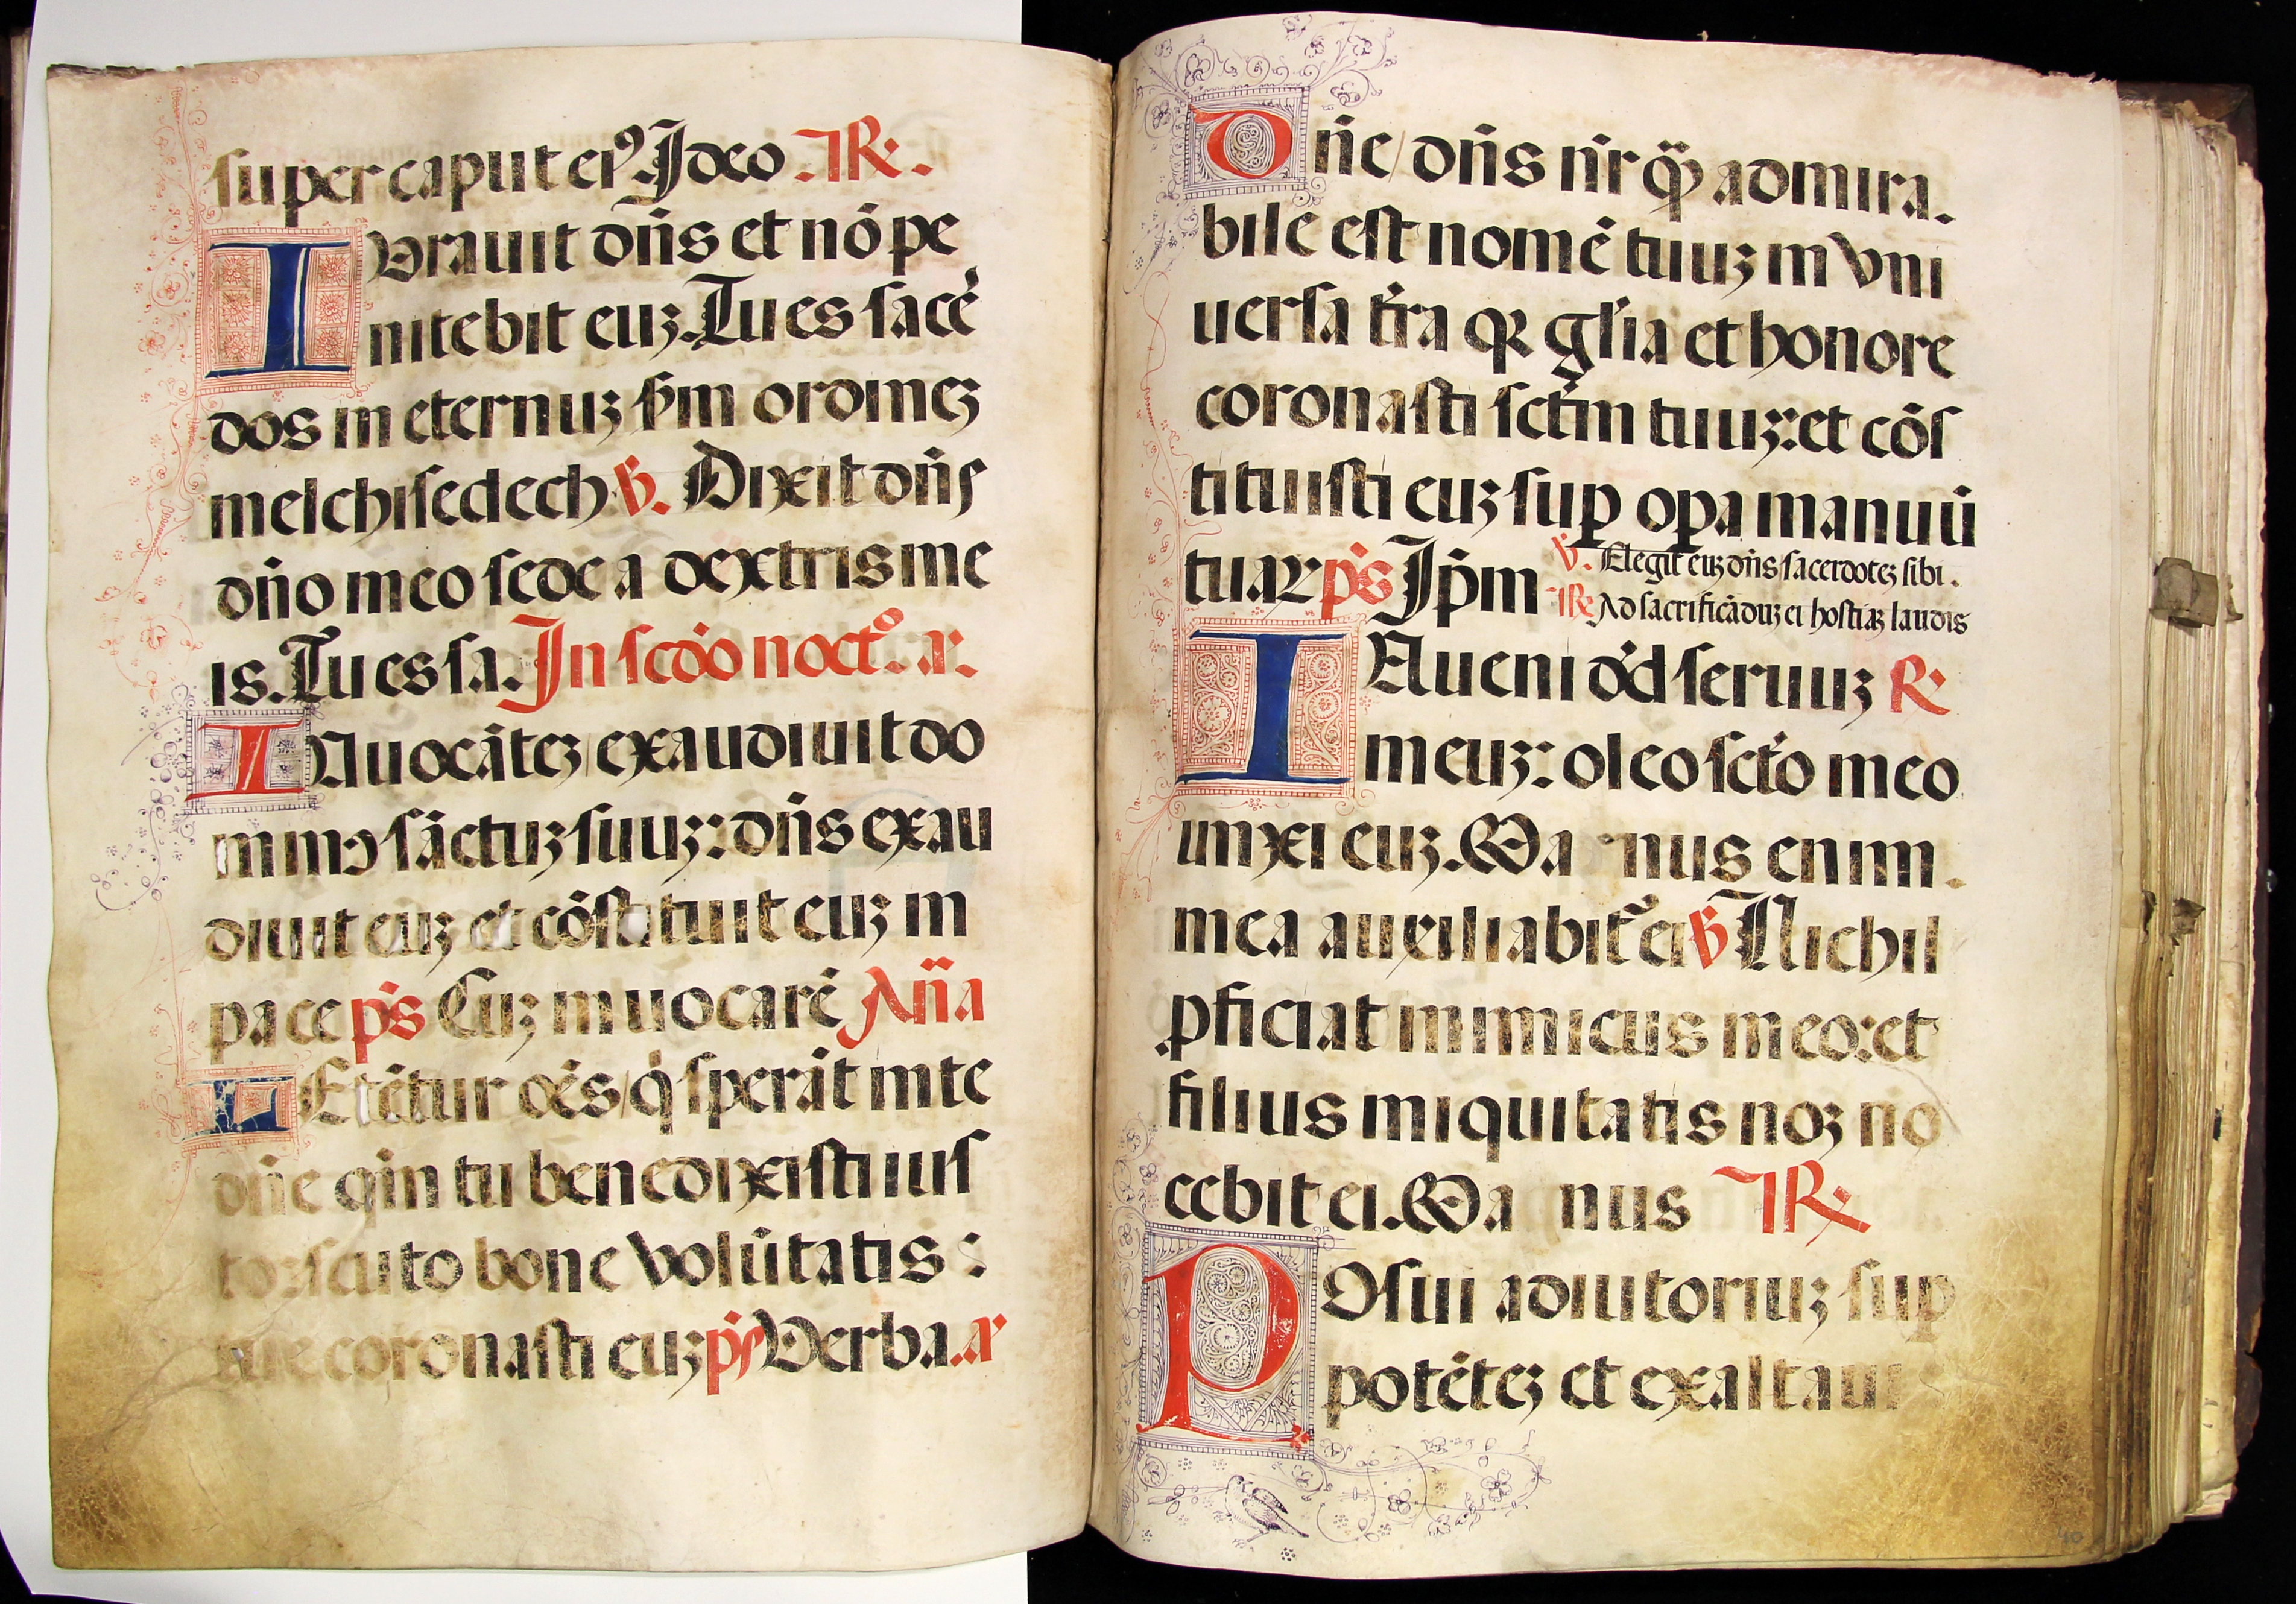 super caput eiꝰ. Ideo .IR.
IVrauit dn̄s et nō pe
nitebit euȝ. Tu es sacē
dos in eternuȝ ẜm ordineȝ
melchisedech ℣. Dixit dn̄s
dn̄o meo sede a dextris me
is. Tu es sa. In scd̄o noct̊. a.
INuocāteȝ / exaudiuit do
minꝰ sāctuȝ suuȝ: dn̄s exau
diuit euȝ et cōstituit euȝ in
pace p̄s Cuȝ inuocarē An̄a
LEtētur oēs / q̇ sperāt in te
dn̄e qm̄ tu benedixisti ius
to: scuto bone volūtatis:
tue coronasti euȝ p̄s Verba. a
Dn̄e / dn̄s nr̄ qꝫ admira.
bile est nomē tuuȝ in vni
uersa tr̄ra qꝛ gl̄ia et honore
coronasti sctm̄ tuuȝ: et cōs
tituisti euȝ suꝑ oꝑa manuū
tuaꝝ p̄s Ip̄m
℣. Elegit euȝ dn̄s / sacerdoteȝ sibi.
IR. Ad sacrificāduȝ ei hostiaȝ laudis
INueni dd̄ seruuȝ R
meuȝ: oleo sctō meo
unxi euȝ. Ma nus enim.
mea auxiliabit᷑ ei ℣ Nichil
ꝓficiat inimicus in eo: et
filius iniquitatis noȝ no
cebit ei. Ma nus IR
POsui adiutoriuȝ suꝑ
potēteȝ et exaltaui
40